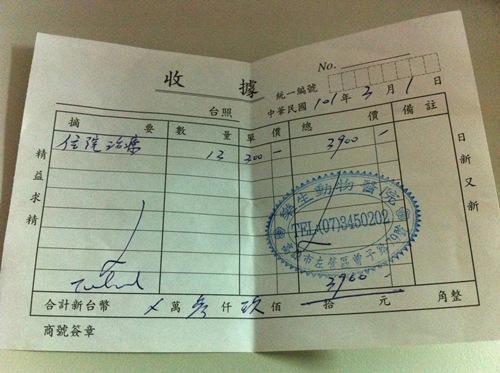 No.
收 據
統一編號
台照
中華民國 101 年 3 月 1 日
摘 要 數 量 單 價 總 價 備 註
住院治療 13 300 — 3900 —
精益求精
日新又新
樂生動物醫院
TEL:(07)3450202
高雄市左營區曾子路
3900
合計新台幣 × 萬 參 仟 玖 佰 拾 元 角整
商號簽章